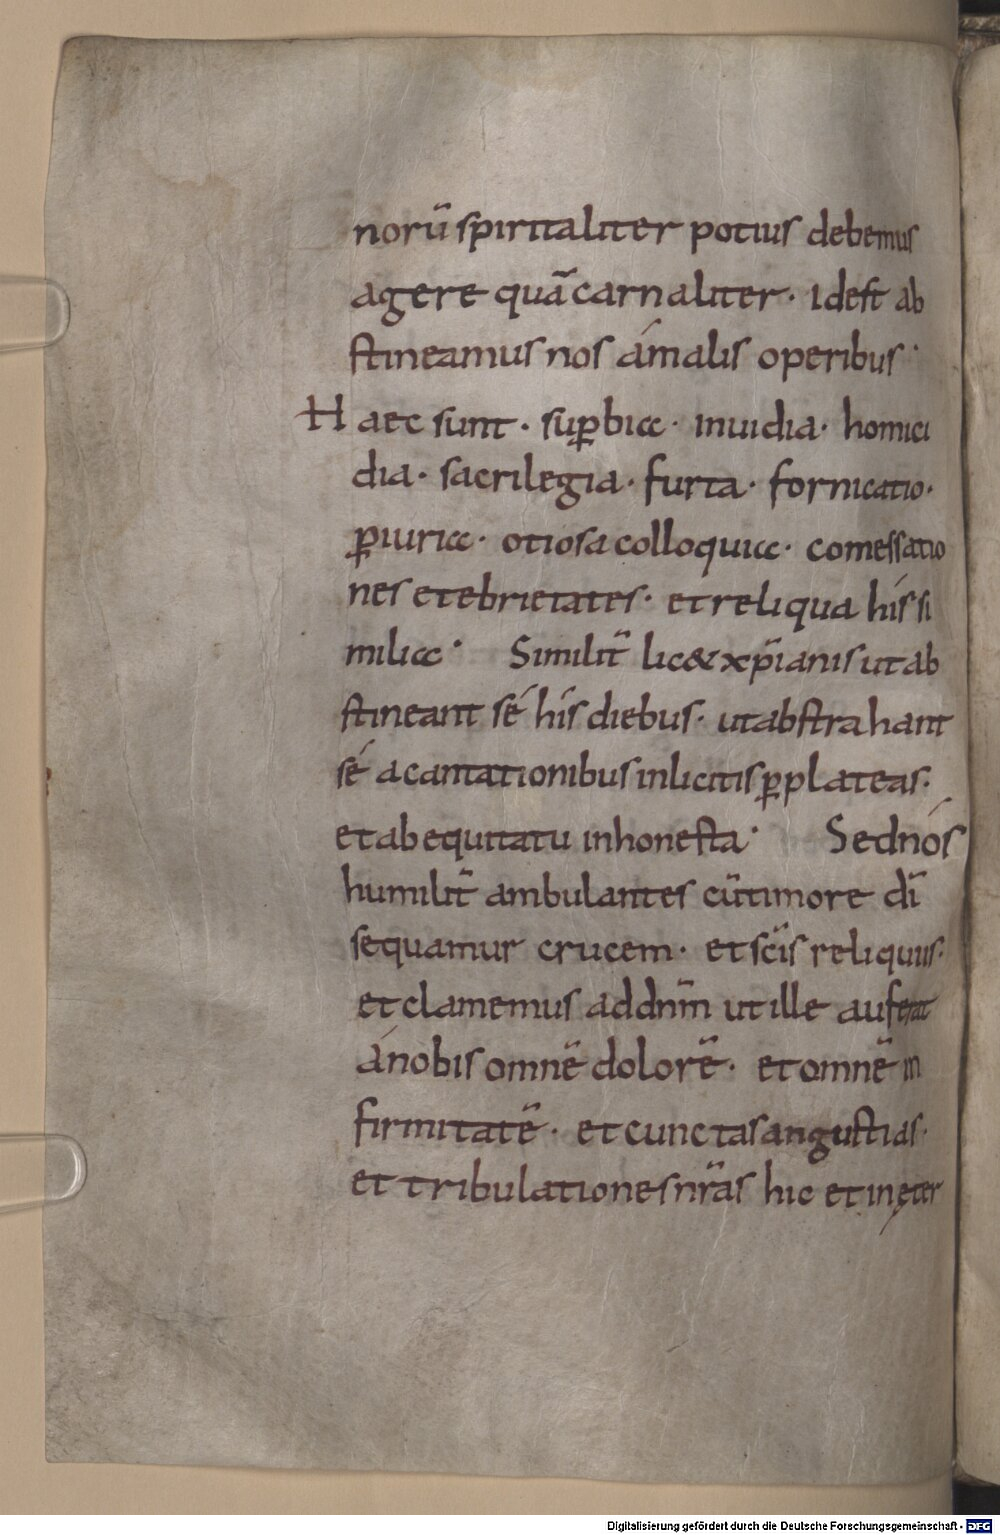 norū spiritaliter potius debemus
agere quā carnaliter · idest ab
stineamus nos á malis operibus ·
Haec sunt · suꝑbia · inuidia · homici
dia · sacrilegia · furta · fornicatio ·
ꝑiuria · otiosa colloquia · comessatio
nes et ebrietates · et reliqua hís si
milia · Similit̄ lic& xp̄ianis ut ab
stineant sé hís diebus · ut abstrahant
sé a cantationibus inlicitis ꝑ plateas ·
et ab equitatu inhonesta · Sed nós
humilit̄ ambulantes cū timore dī
sequamur crucem · et sc̄is reliquiis ·
et clamemus ad dnm̄ ut ille auferat
á nobis omnē dolorē · et omnē in
firmitatē · et cunctas angustias ·
et tribulationes nr̄as hic et in ęter
Digitalisierung gefördert durch die Deutsche Forschungsgemeinschaft - DFG